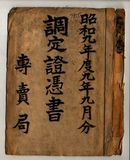 昭和九年度九年九月分
調定證憑書
專賣局